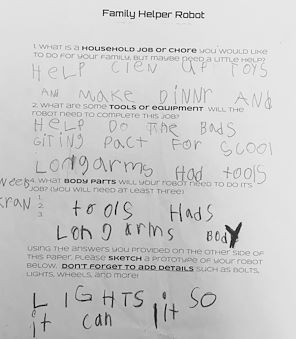 Family Helper Robot
1. WHAT IS A HOUSEHOLD JOB OR CHORE YOU WOULD LIKE
TO DO FOR YOUR FAMILY, BUT MAYBE NEED A LITTLE HELP?
HELP CLEN UP TOYS
AND MAKE DINNR AND
2. WHAT ARE SOME TOOLS OR EQUIPMENT WILL THE
ROBOT NEED TO COMPLETE THIS JOB?
HELP DO THE BADS
GITING PACT FOR SCOOL
LONgarms Had tOOlS
4. WHAT BODY PARTS WILL YOUR ROBOT NEED TO DO IT'S
JOB? (YOU WILL NEED AT LEAST THREE)
1.
2.
3.
toOlS HadS
LONg arms BODY
USING THE ANSWERS YOU PROVIDED ON THE OTHER SIDE OF
THIS PAPER, PLEASE SKETCH A PROTOTYPE OF YOUR ROBOT
BELOW. DON'T FORGET TO ADD DETAILS SUCH AS BOLTS,
LIGHTS, WHEELS, AND MORE!
LIGHTS it SO
it can lit